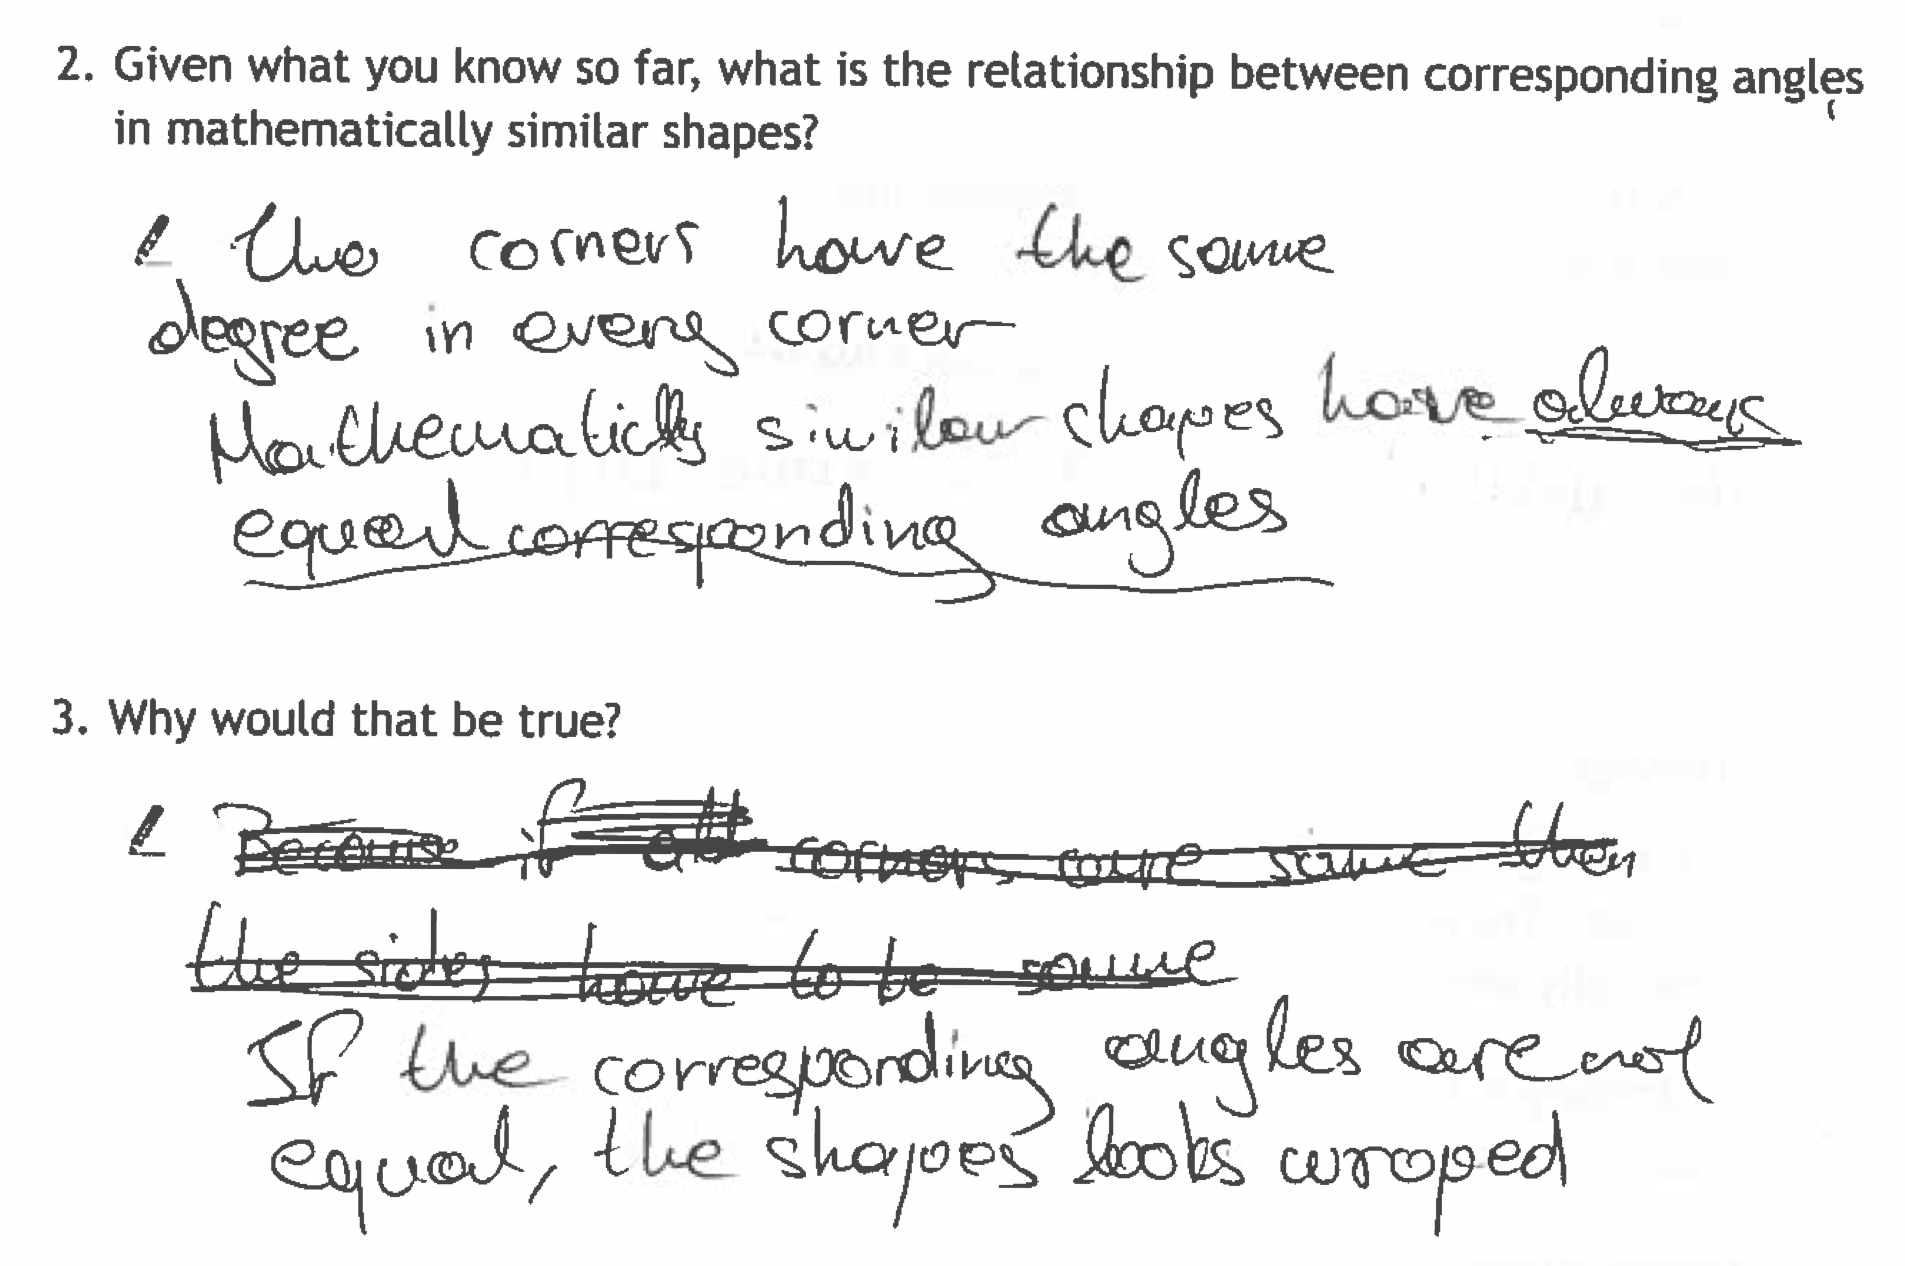 2. Given what you know so far, what is the relationship between corresponding angles
in mathematically similar shapes?
the corners have the same
degree in every corner
Mathematiclly similar shapes have always
equal corresponding angles
3. Why would that be true?
Because if all corners are same then
the sides have to be same
If the corresponding angles are not
equal, the shapes looks wroped